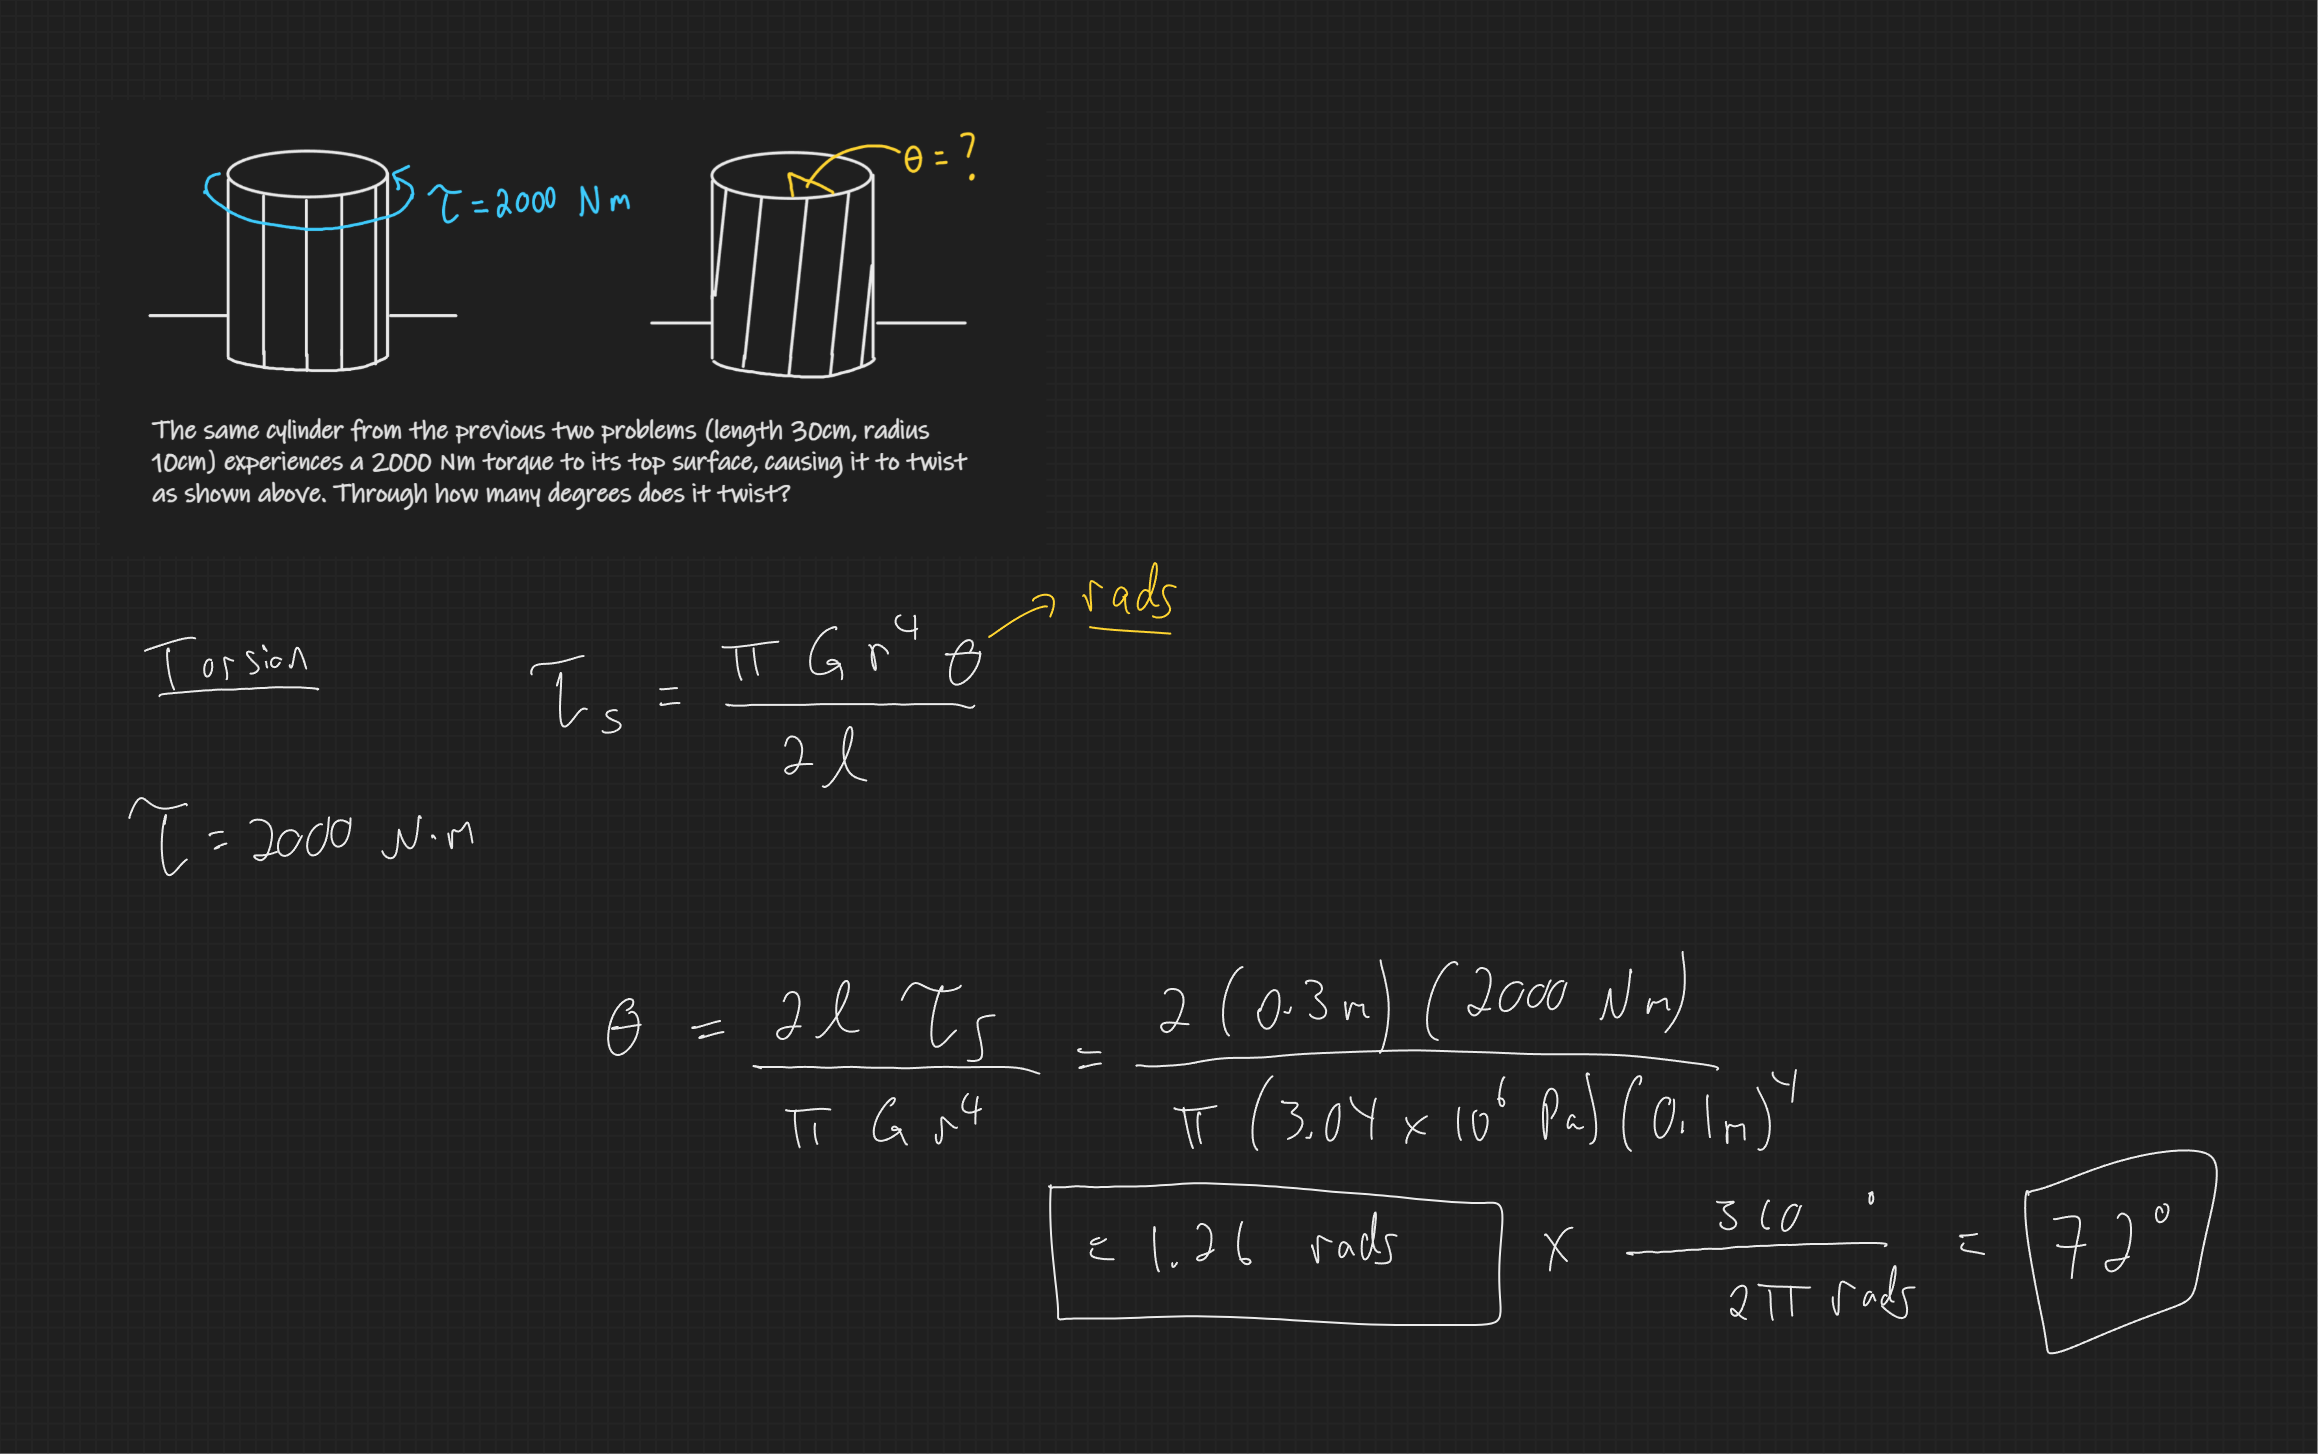 τ = 2000 Nm
θ = ?
The same cylinder from the previous two problems (length 30cm, radius
10cm) experiences a 2000 Nm torque to its top surface, causing it to twist
as shown above. Through how many degrees does it twist?
rads
Torsion
τ_s = π G r⁴ θ / 2 l
τ = 2000 N·m
θ = 2 l τ_s / π G r⁴ = 2 (0.3 m) (2000 Nm) / π (3.04 × 10⁶ Pa) (0.1 m)⁴
= 1.26 rads × 360° / 2π rads = 72°